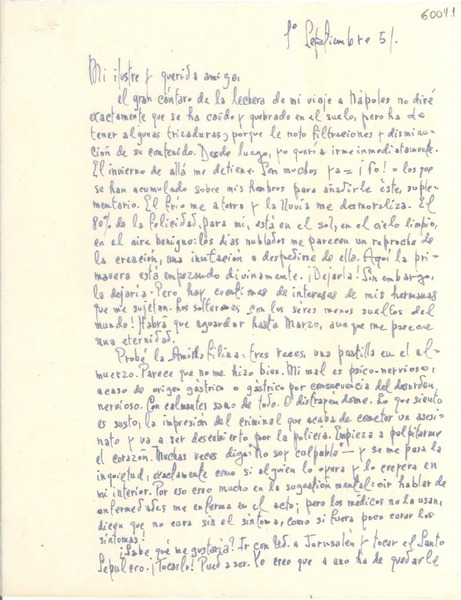 60041
1º Septiembre 51.
Mi ilustre y querida amiga,
el gran cántaro de la lechera de mi viaje a Nápoles no diré
exactamente que se ha caído y quebrado en el suelo, pero ha de
tener algunas trizaduras, porque le noto filtraciones y disminu-
ción de su contenido. Desde luego, yo quería irme inmediatamente.
El invierno de allá me detiene. Son muchos ya = ¡60! = los que
se han acumulado sobre mis hombros para añadirle éste, suple-
mentario. El frío me aterra y la lluvia me desmoraliza. El
80% de la felicidad, para mí, está en el sol, en el cielo limpio,
en el aire benigno: los días nublados me parecen un reproche de
la creación, una invitación a despedirse de ella. Aquí la pri-
mavera está empezando divinamente. ¡Dejarla! Sin embargo,
la dejaría. Pero hay cuestiones de intereses de mis hermanas
que me sujetan. Los solterones son los seres menos sueltos del
mundo! Habrá que aguardar hasta Marzo, aunque me parece
una eternidad.
Probé la Aminofilina. Tres veces, una pastilla en el al-
muerzo. Parece que no me hizo bien. Mi mal es psico-nervioso,
acaso de origen gástrico o gástrico por consecuencia del desorden
nervioso. Con calmantes sano de todo. O distrayéndome. Lo que siento
es susto, la impresión del criminal que acaba de cometer un asesi-
nato y va a ser descubierto por la policía. Empieza a palpitarme
el corazón. Muchas veces digo: No soy culpable — y se me pasa la
inquietud, exactamente como si alguien lo oyera y lo creyera en
mi interior. Por eso creo mucho en la sugestión mental: oir hablar de
enfermedades me enferma en el acto; pero los médicos no la usan,
dicen que no cura sin el síntoma, como si fuera poco curar los
síntomas!
¿Sabe qué me gustaría? Ir con Ud. a Jerusalén y tocar el Santo
Sepulcro. ¡Tocarlo! Puede ser. Yo creo que a uno ha de quedarle